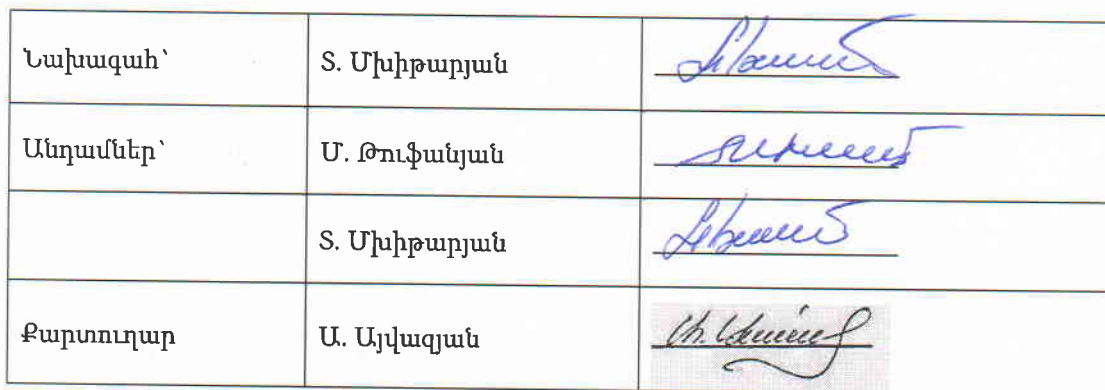 Նախագահ՝ Տ. Մխիթարյան
Անդամներ՝ Մ. Թուֆանյան
Տ. Մխիթարյան
Քարտուղար Ա. Այվազյան